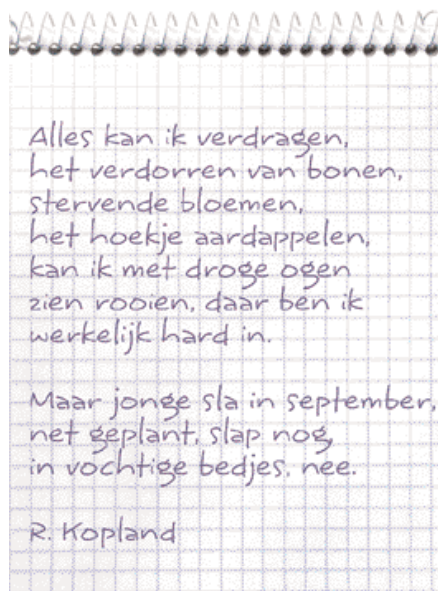 Alles kan ik verdragen,
het verdorren van bonen,
stervende bloemen,
het hoekje aardappelen,
kan ik met droge ogen
zien rooien, daar ben ik
werkelijk hard in.
Maar jonge sla in september,
net geplant, slap nog,
in vochtige bedjes, nee.
R. Kopland